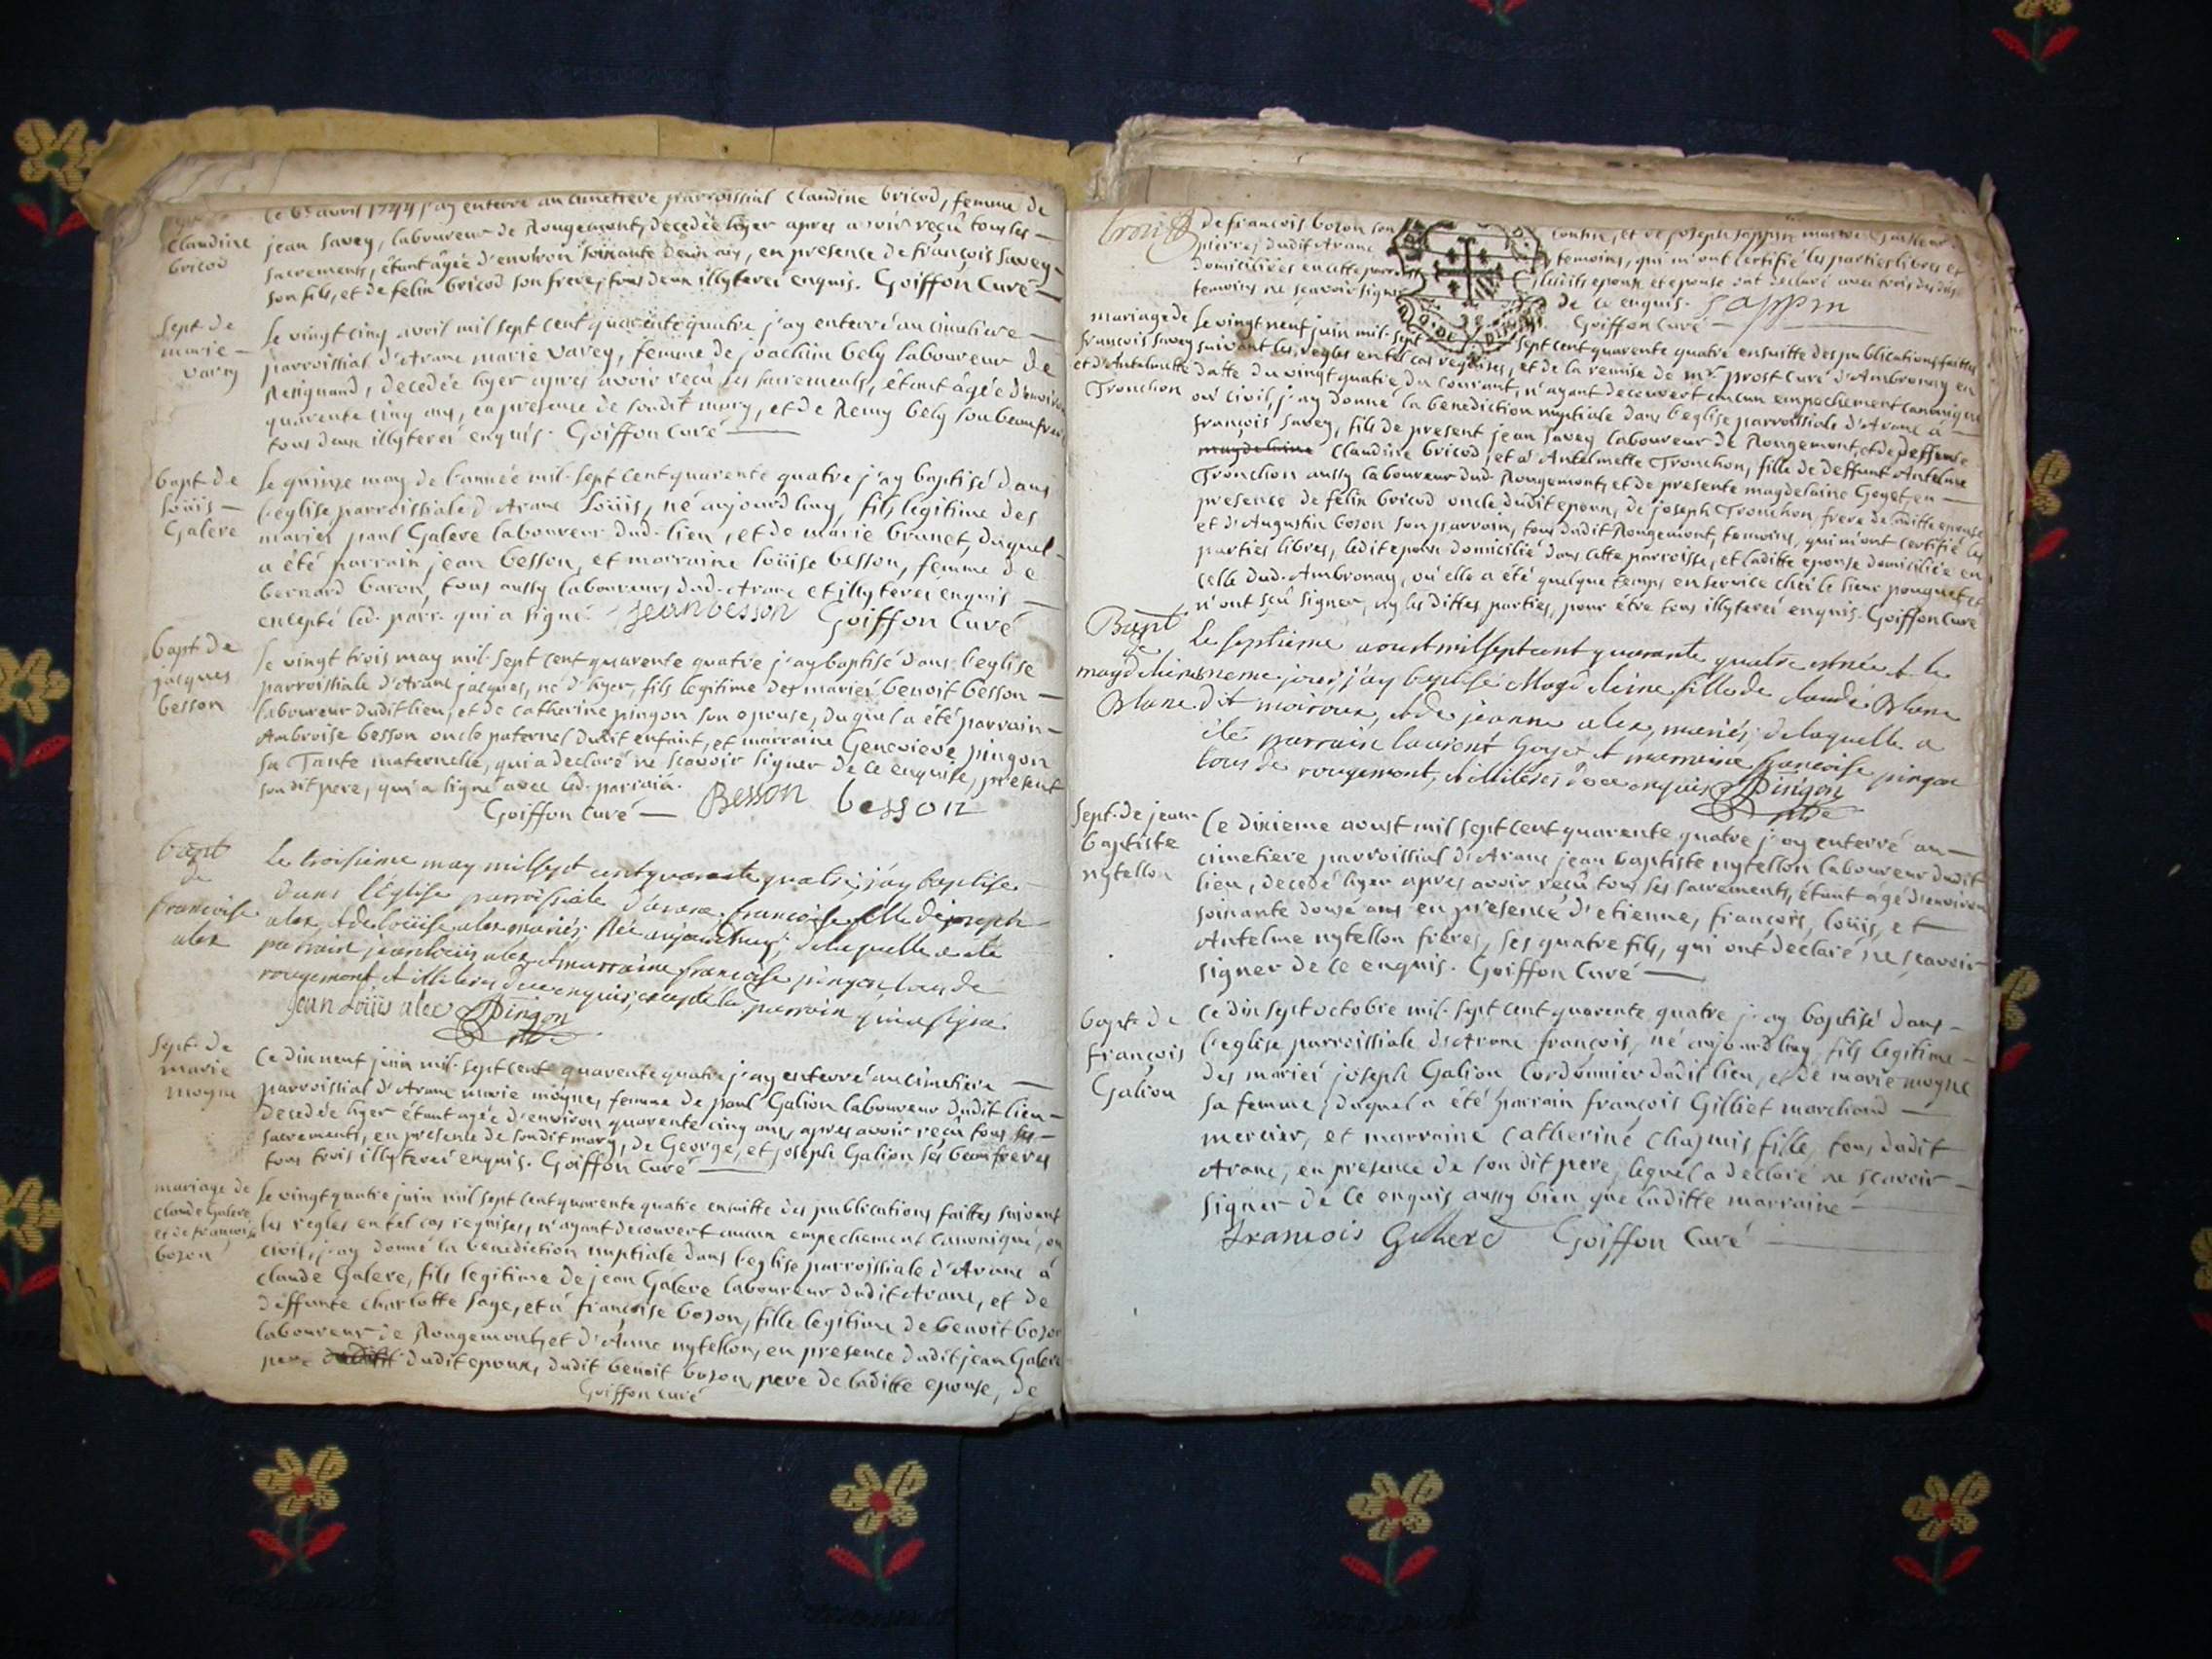 Ce 6e avril 1744 j'ay enterré au cimetiere parroissial Claudine bricod, femme de
Claudine
bricod
jean savey, laboureur de Rougemont, decedée hyer apres avoir reçû tous les
sacrements, étant âgée d'environ soixante deux ans, en presence de françois savey
son fils, et de felix bricod son frere, tous deux illyterei enquis. Goiffon Curé
sept. de
marie
varey
Le vingt cinq avril mil sept cent quarente quatre j'ay enterré au cimetiere
parroissial d'Aranc marie varey, femme de joachim bely laboureur de
Resignand, decedée hyer apres avoir reçû ses sacrements, étant âgée d'environ
quarente cinq ans, en presence de sondit mary, et de Remy bely son beaufrere
tous deux illyterei enquis. Goiffon Curé
bapt. de
Loüis
Galere
Le quinze may de l'année mil sept cent quarente quatre j'ay baptisé dans
l'église parroissiale d'Aranc Loüis, né aujourd'huy, fils legitime des
mariez paul Galere laboureur dud. lieu, et de marie brunet, duquel
a été parrain jean besson, et marraine loüise besson, femme de
bernard baron, tous aussy laboureurs dud. Aranc et illyterei enquis
excepté led. parr. qui a signé. jean besson Goiffon Curé
bapt. de
jacques
besson
Le vingt trois may mil sept cent quarente quatre j'ay baptisé dans l'eglise
parroissiale d'Aranc jacques, né d'hyer, fils legitime des mariei benoit besson
laboureur dudit lieu, et de catherine pingon son epouse, duquel a été parrain
Ambroise besson oncle paternel dudit enfant, et marraine Genevieve pingon
sa Tante maternelle, qui a declaré ne scavoir signer de ce enquise, present
son dit pere, qui a signé avec led. parrain.
Goiffon Curé Besson besson
bapt
de
francoise
alex
Le troisieme may mil sept cent quarante quatre j'ay baptisé
dans l'Église parroissiale d'aranc francoise fille de joseph
alex, et de loüise alex mariés, Née aujourdhuy, de laquelle a été
parrain jean loüis alex et marraine francoise pingon tous de
rougemont et illiteres de ce enquis, excepté le parrain qui a signé
jean Loüis alex Pingon
sept. de
marie
moyne
Ce dix neuf juin mil sept cent quarente quatre j'ay enterré au cimetiere
parroissial d'Aranc marie moyne, femme de paul Galion laboureur dudit lieu
decedée hyer étant agée d'environ quarente cinq ans, apres avoir reçû tous les
sacrements, en presence de sondit mary, de George, et joseph Galion ses beaufreres
tous trois illyterei enquis. Goiffon Curé
mariage de
claude Galere
et de francoise
bozon
Le vingt quatre juin mil sept cent quarente quatre ensuitte des publications faittes suivant
les regles en tel cas requises, n'ayant decouvert aucun empechement canonique, ou
civil, j'ay donné la benediction nuptiale dans l'eglise parroissiale d'Aranc à
claude Galere, fils legitime de jean Galere laboureur dudit Aranc, et de
deffunte charlotte sage, et à françoise bozon, fille legitime de benoit bozon
laboureur de Rougemont, et d'Anne nytellon, en presence dudit jean Galere
pere dudit epoux, dudit benoit bozon, pere de laditte epouse, de
Goiffon curé
trois
de francois bozon son cousin, et de joseph sappin
pierre, dudit Aranc temoins, qui m'ont certifié les parties libres et
domiciliées en cette parroisse lesdits epoux et epouse ont declaré avec
temoins ne scavoir signer de ce enquis. Sappin
Goiffon Curé
mariage de
francois savey
et d'Antelmette
Tronchon
Le vingt neuf juin mil sept sept cent quarente quatre ensuitte des publications faittes
suivant les regles en tel cas requises, et de la remise de mr prost Curé d'Ambronay en
datte du vingt quatre du courant, n'ayant decouvert aucun empechement canonique
ou civil, j'ay donné la benediction nuptiale dans l'eglise parroissiale d'Aranc à
françois savey, fils de present jean savey laboureur de Rougemont, et de deffunte
magdelaine Claudine bricod, et à Antelmette Tronchon, fille de deffunt Antelme
Tronchon aussy laboureur dud. Rougemont, et de presente magdelaine Goyet, en
presence de felix bricod oncle dudit epoux, de joseph Tronchon frere de laditte epouse
et d'Augustin bozon son parrain, tous dudit Rougemont, temoins, qui m'ont certifié les
parties libres, ledit epoux domicilié dans cette parroisse, et laditte epouse domiciliée en
celle dud. Ambronay, où elle a été quelque temps en service chéz le sieur pouguet, et
n'ont sçû signer, ny les dittes parties, pour être tous illyterei enquis. Goiffon Curé
Bapt
de
magdeleine
Blanc
Le septieme aoust mil sept cent quarante quatre est née et le
meme jour j'ay baptisé Magdeleine fille de claude Blanc
dit moiroux, et de jeanne alex, mariés, de laquelle a
été parrain laurent Goyet et marraine francoise pingon
tous de rougemont, et illiteres de ce enquis Pingon
sept. de jean
baptiste
nytellon
Ce dixieme aoust mil sept cent quarente quatre j'ay enterré au
cimetiere parroissial d'Aranc jean baptiste nytellon laboureur dudit
lieu, decedé hyer apres avoir reçû tous ses sacrements, étant âgé d'environ
soixante douze ans en presence d'etienne, françois, loüis, et
Antelme nytellon freres, ses quatre fils, qui ont declaré ne scavoir
signer de ce enquis. Goiffon Curé
bapt. de
françois
Galion
Ce dix sept octobre mil sept cent quarente quatre j'ay baptisé dans
l'eglise parroissiale d'Aranc françois, né aujourd'huy, fils legitime
des mariei joseph Galion Cordonnier dudit lieu, et de marie moyne
sa femme, duquel a été parrain françois Gilliet marchand
mercier, et marraine catherine chapuis fille, tous dudit
Aranc, en presence de son dit pere, lequel a declaré ne scavoir
signer de ce enquis aussy bien que laditte marraine
Goiffon Curé